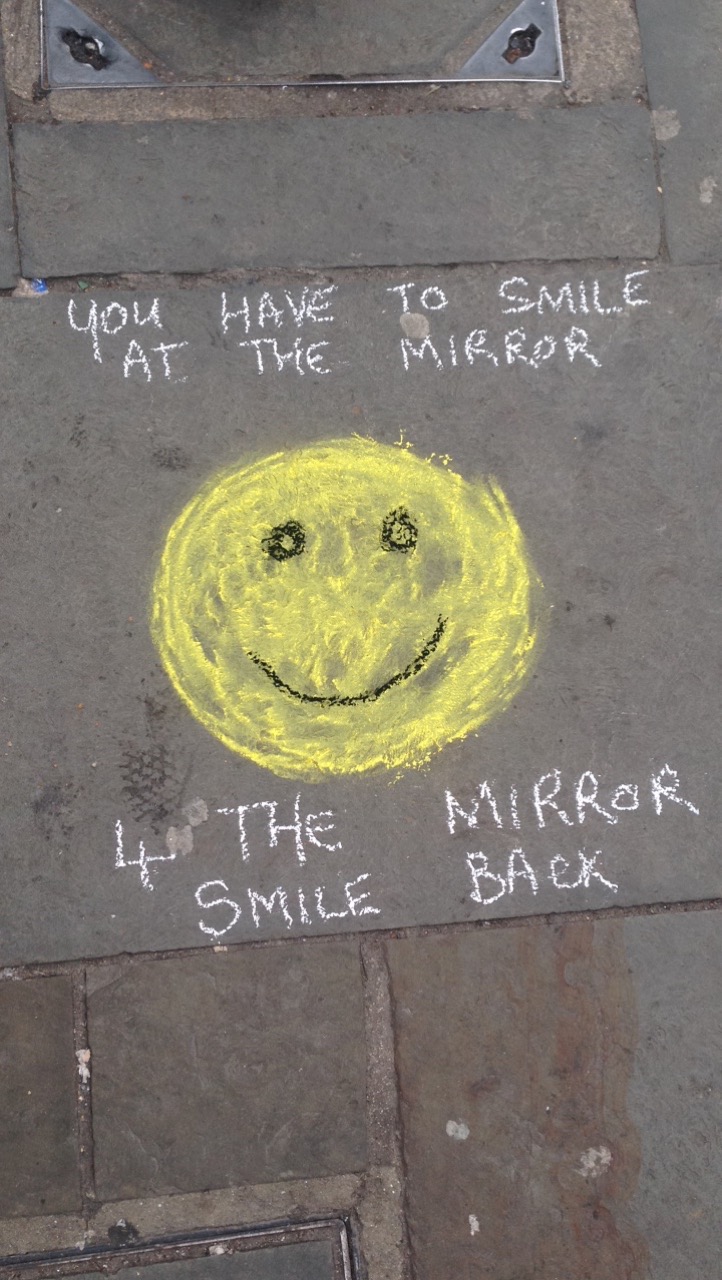 YOU HAVE TO SMILE
AT THE MIRROR
4 THE MIRROR
SMILE BACK